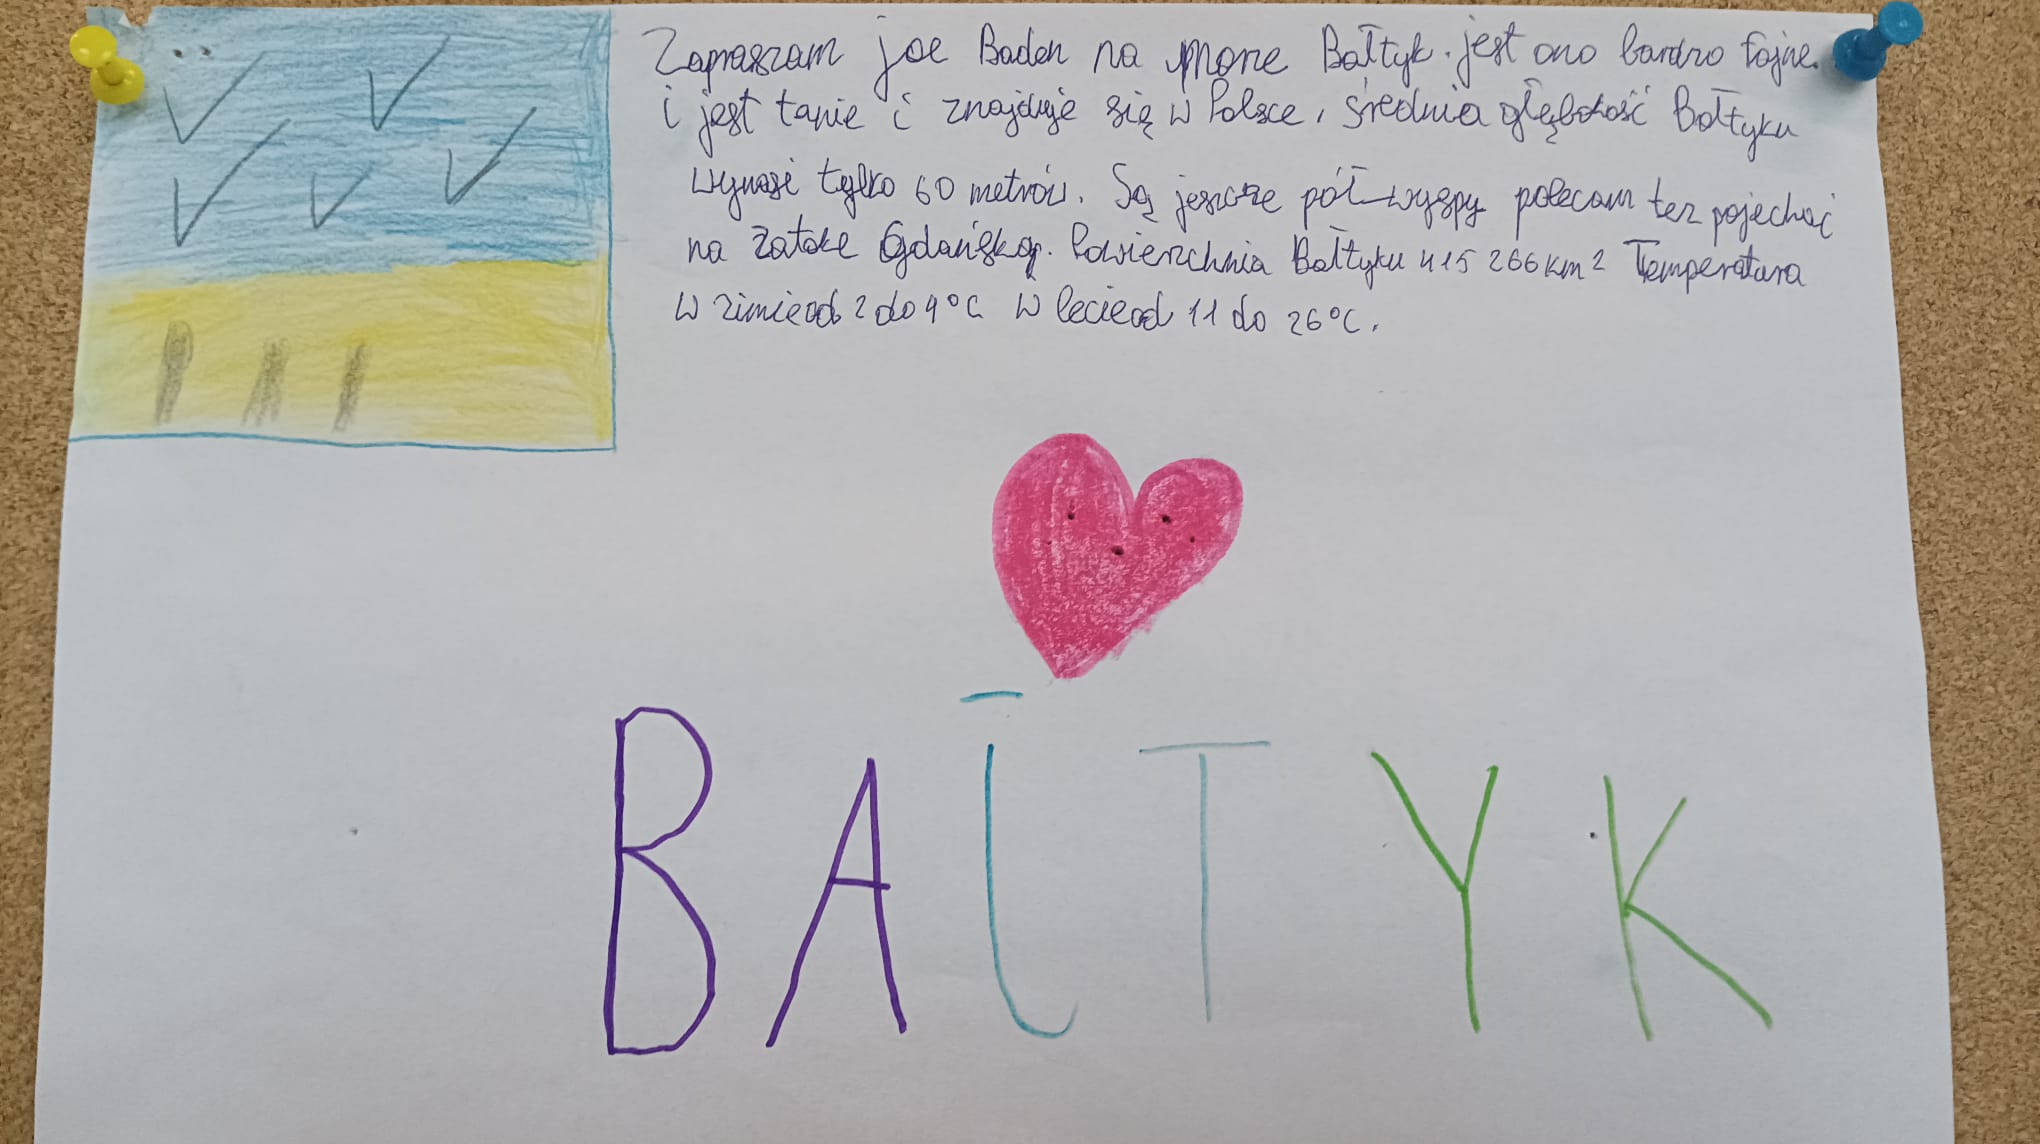 Zapraszam joe Baden na mone Bałtyk. jest ono bardzo fajne.
i jest tanie i znajduje się w Polsce, średnia głębokość Bałtyku
wynosi tylko 60 metrów. Są jeszcze pół-wyspy polecam tez pojechać
na Zatoke Gdańską. Powierzchnia Bałtyku 415 266 km² Temperatura
w zimie od 2 do 4°C w lecie od 11 do 26°C.
BAŁTYK